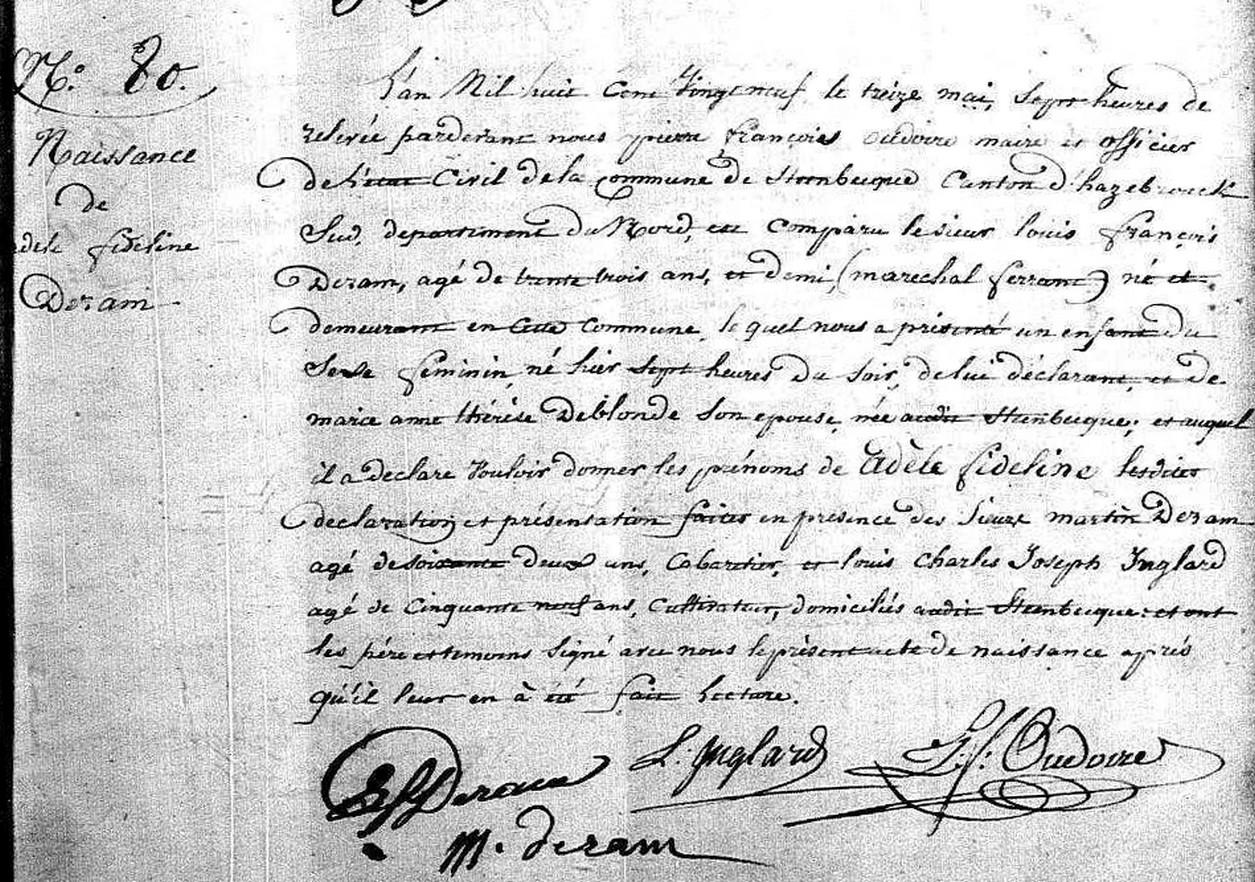 N.° 80.
Naissance
de
adele fideline
Deram
L'an Mil huit Cent Vingt neuf le treize mai, Sept heures de
relevée pardevant nous pierre françois Oudoire maire et officier
de L'état Civil de la Commune de Steenbecque Canton d'hazebrouck
Sud, departiment du Nord, est comparu le sieur louis françois
Deram, agé de trente trois ans, et demi, (marechal ferrant) né et
demeurant en cette Commune, le quel nous a présenté un enfant du
Sexe feminin, né hier Sept heures du Soir, de lui déclarant, et de
marie anne thérèse Deblonde Son epouse, née audit Steenbecque; et auquel
il a declare Vouloir donner les prénoms de Adèle fideline lesdites
declaration et présentation faites en presence des Sieurs martin Deram
agé de soixante deux ans, Cabaretier, et louis Charles Joseph Inglard
agé de Cinquante neuf ans, Cultivateur, domiciliés audit Steenbecque: et ont
les pére et temoins Signé avec nous le présent acte de naissance aprés
qu'il leur en à été fait Lecture.
Deram
L. Inglard
P. f. Oudoire
M. deram